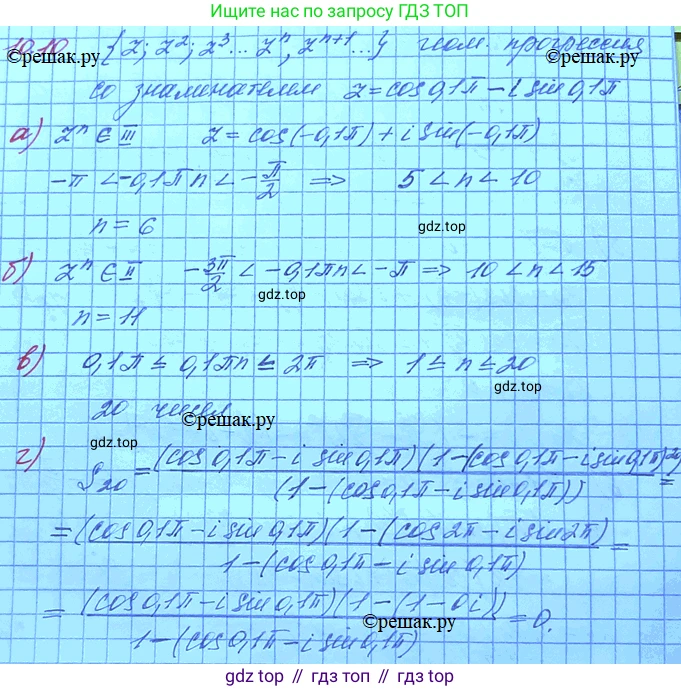 Ищите нас по запросу ГДЗ ТОП
10.10 {z; z²; z³... zⁿ, zⁿ⁺¹...} геом. прогрессия
©решак.ру ©решак.ру
со знаменателем z = cos 0,1π − i sin 0,1π
а) zⁿ ∈ III z = cos(−0,1π) + i sin(−0,1π)
−π < −0,1πn < −π/2 ⇒ 5 < n < 10
n = 6
gdz.top
б) zⁿ ∈ II −3π/2 < −0,1πn < −π ⇒ 10 < n < 15
gdz.top
n = 11
в) 0,1π ≤ 0,1πn ≤ 2π ⇒ 1 ≤ n ≤ 20
gdz.top
20 чисел
©решак.ру
gdz.top
г) S₂₀ = (cos 0,1π − i sin 0,1π)(1 − (cos 0,1π − i sin 0,1π)²⁰) / (1 − (cos 0,1π − i sin 0,1π)) =
= (cos 0,1π − i sin 0,1π)(1 − (cos 2π − i sin 2π) / 1 − (cos 0,1π − i sin 0,1π) =
= (cos 0,1π − i sin 0,1π)(1 − (1 − 0i)) / 1 − (cos 0,1π − i sin 0,1π) = 0.
©решак.ру
gdz top // гдз топ // gdz.top